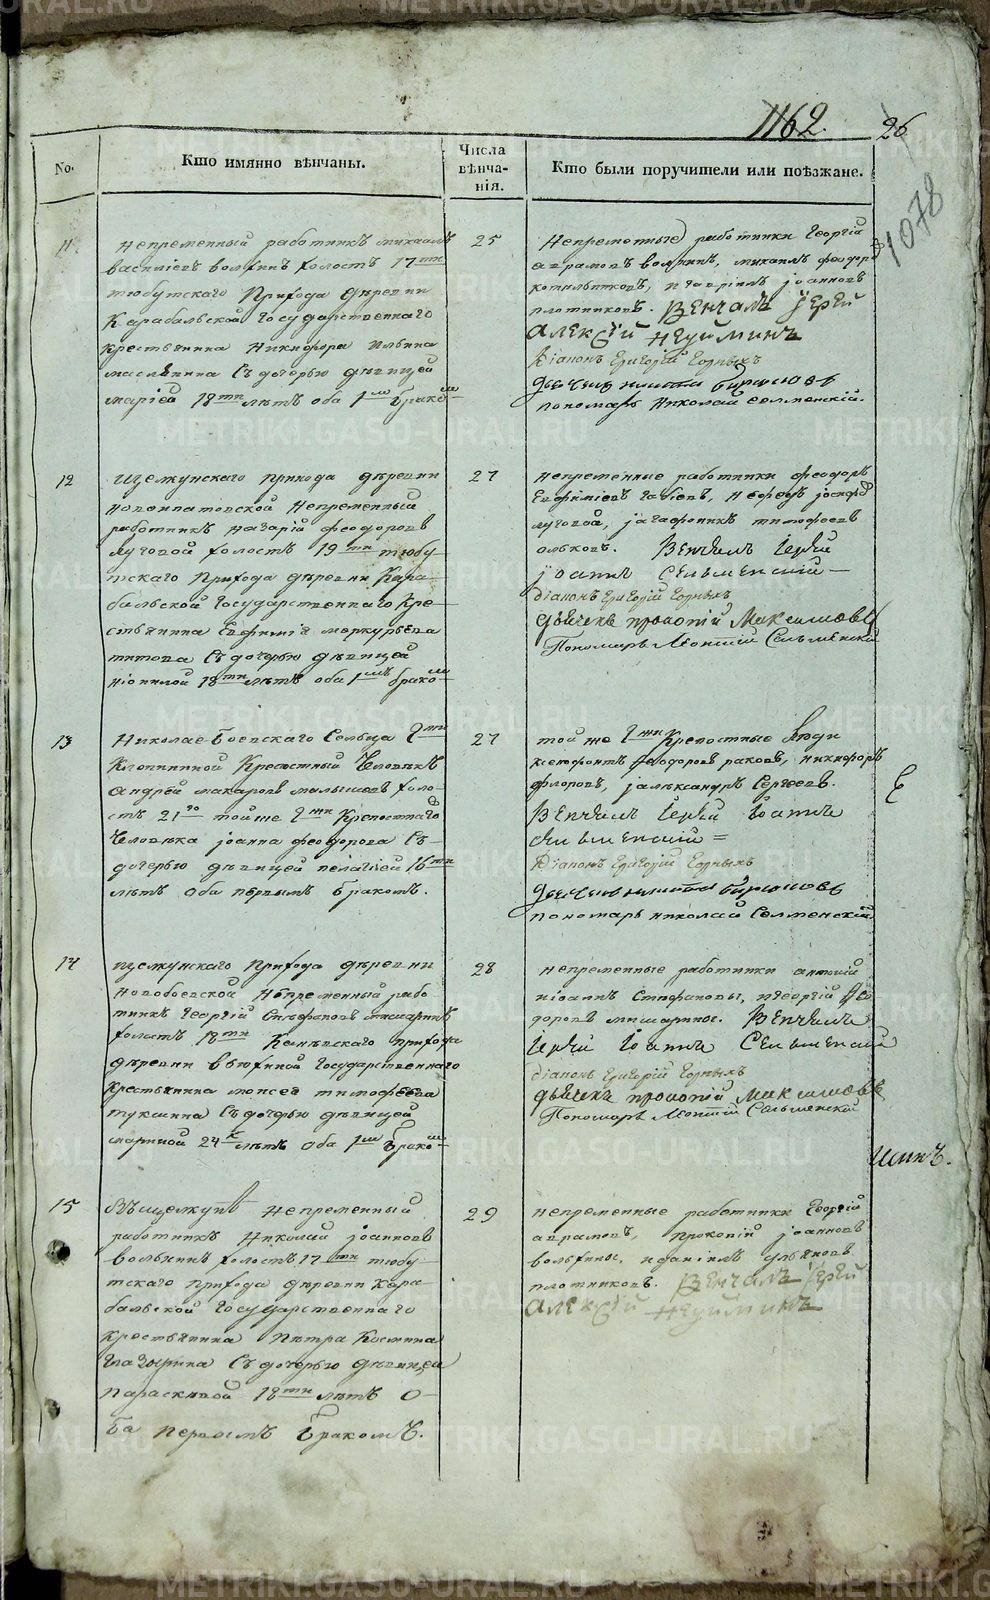 1162.
26
1078
No.
Кто имянно вѣнчаны.
Числа
вѣнча-
нія.
Кто были поручители или поѣзжане.
11
непременный работникъ михаилъ
василіевъ волхинъ холостъ 17ти
тюбутскаго прихода деревни
Карабальской государственнаго
крестьянина Никифора Ильина
маслѣнина съ дочерью дѣвицей
маріей 18ти лѣтъ оба 1м брако
25
Непременные работники Георгій
аврамовъ волхинъ, михаилъ
іоанновъ
плотниковъ. Вѣнчалъ Іерей
Алексій Неуйминъ
Діаконъ Григорій Горныхъ
дьячекъ никита
пономарь Николай Селменскій.
12
Щелкунскаго прихода деревни
новоипатовской Непременный
работникъ назарій феодоровъ
луговой холостъ 19ти тюбу-
тскаго прихода деревни Кара-
бальской государственнаго кре-
стьянина Евфимія меркурьева
титова съ дочерью дѣвицей
18ти лѣтъ оба 1мъ брако
27
непременные работники феодоръ
Евфиміевъ
луговой, іагафоникъ тимофеевъ
ольковъ. Вѣнчалъ Іерей
Іоаннъ Сельменскій
Діаконъ Григорій Горныхъ
дьячекъ прокопій Максимовъ
Пономарь Леонтій Сельменскій
13
Николае-Боевскаго Сельца Гжи
Клопининой Крепостный Человѣкъ
Андрей макаровъ малышевъ холо-
стъ 21го тойже Гжи Крепостнаго
Человѣка іоанна феодорова съ
дочерью дѣвицей пелагіей 16ти
лѣтъ Оба первымъ бракомъ.
27
той же Гжи Крепостные люди
ксенофонтъ феодоровъ раковъ, никифоръ
флоровъ, іалександръ Сергеевъ.
Вѣнчалъ Іерей Іоаннъ
Сельменскій =
Діаконъ Григорій Горныхъ
дьячекъ никита
пономарь николай Селменскій
14
щелкунскаго прихода деревни
новобоевской непременный рабо
тникъ Георгій Стефановъ мишаринъ
холостъ 18ти прихода
деревни государственнаго
крестьянина моисея тимофеева
тукшина съ дочерью дѣвицей
мариной 24х лѣтъ оба 1м брако
28
непременные работники антоній
иіоаннъ Стефановы, игеоргій Фео
доровъ мишарины. Вѣнчалъ
Іерей Іоаннъ Сельменскій
Діаконъ Григорій Горныхъ
дьячекъ прокопій Максимовъ
Пономарь Леонтій Сельменскій
15
Въ щелкунѣ Непременный
работникъ Николай іоанновъ
вольхинъ холостъ 17ти тюбу-
тскаго прихода деревни кара
бальской государственнаго
крестьянина Петра Космина
глазырина съ дочерью дѣвицей
параскевой 18ти лѣтъ о-
ба первымъ бракомъ.
29
непременные работники Георгій
аврамовъ, прокопій іоанновъ
вольхины, иданіилъ ульяновъ
плотниковъ. Вѣнчалъ Іерей
Алексій Неуйминъ
METRIKI.GASO-URAL.RU